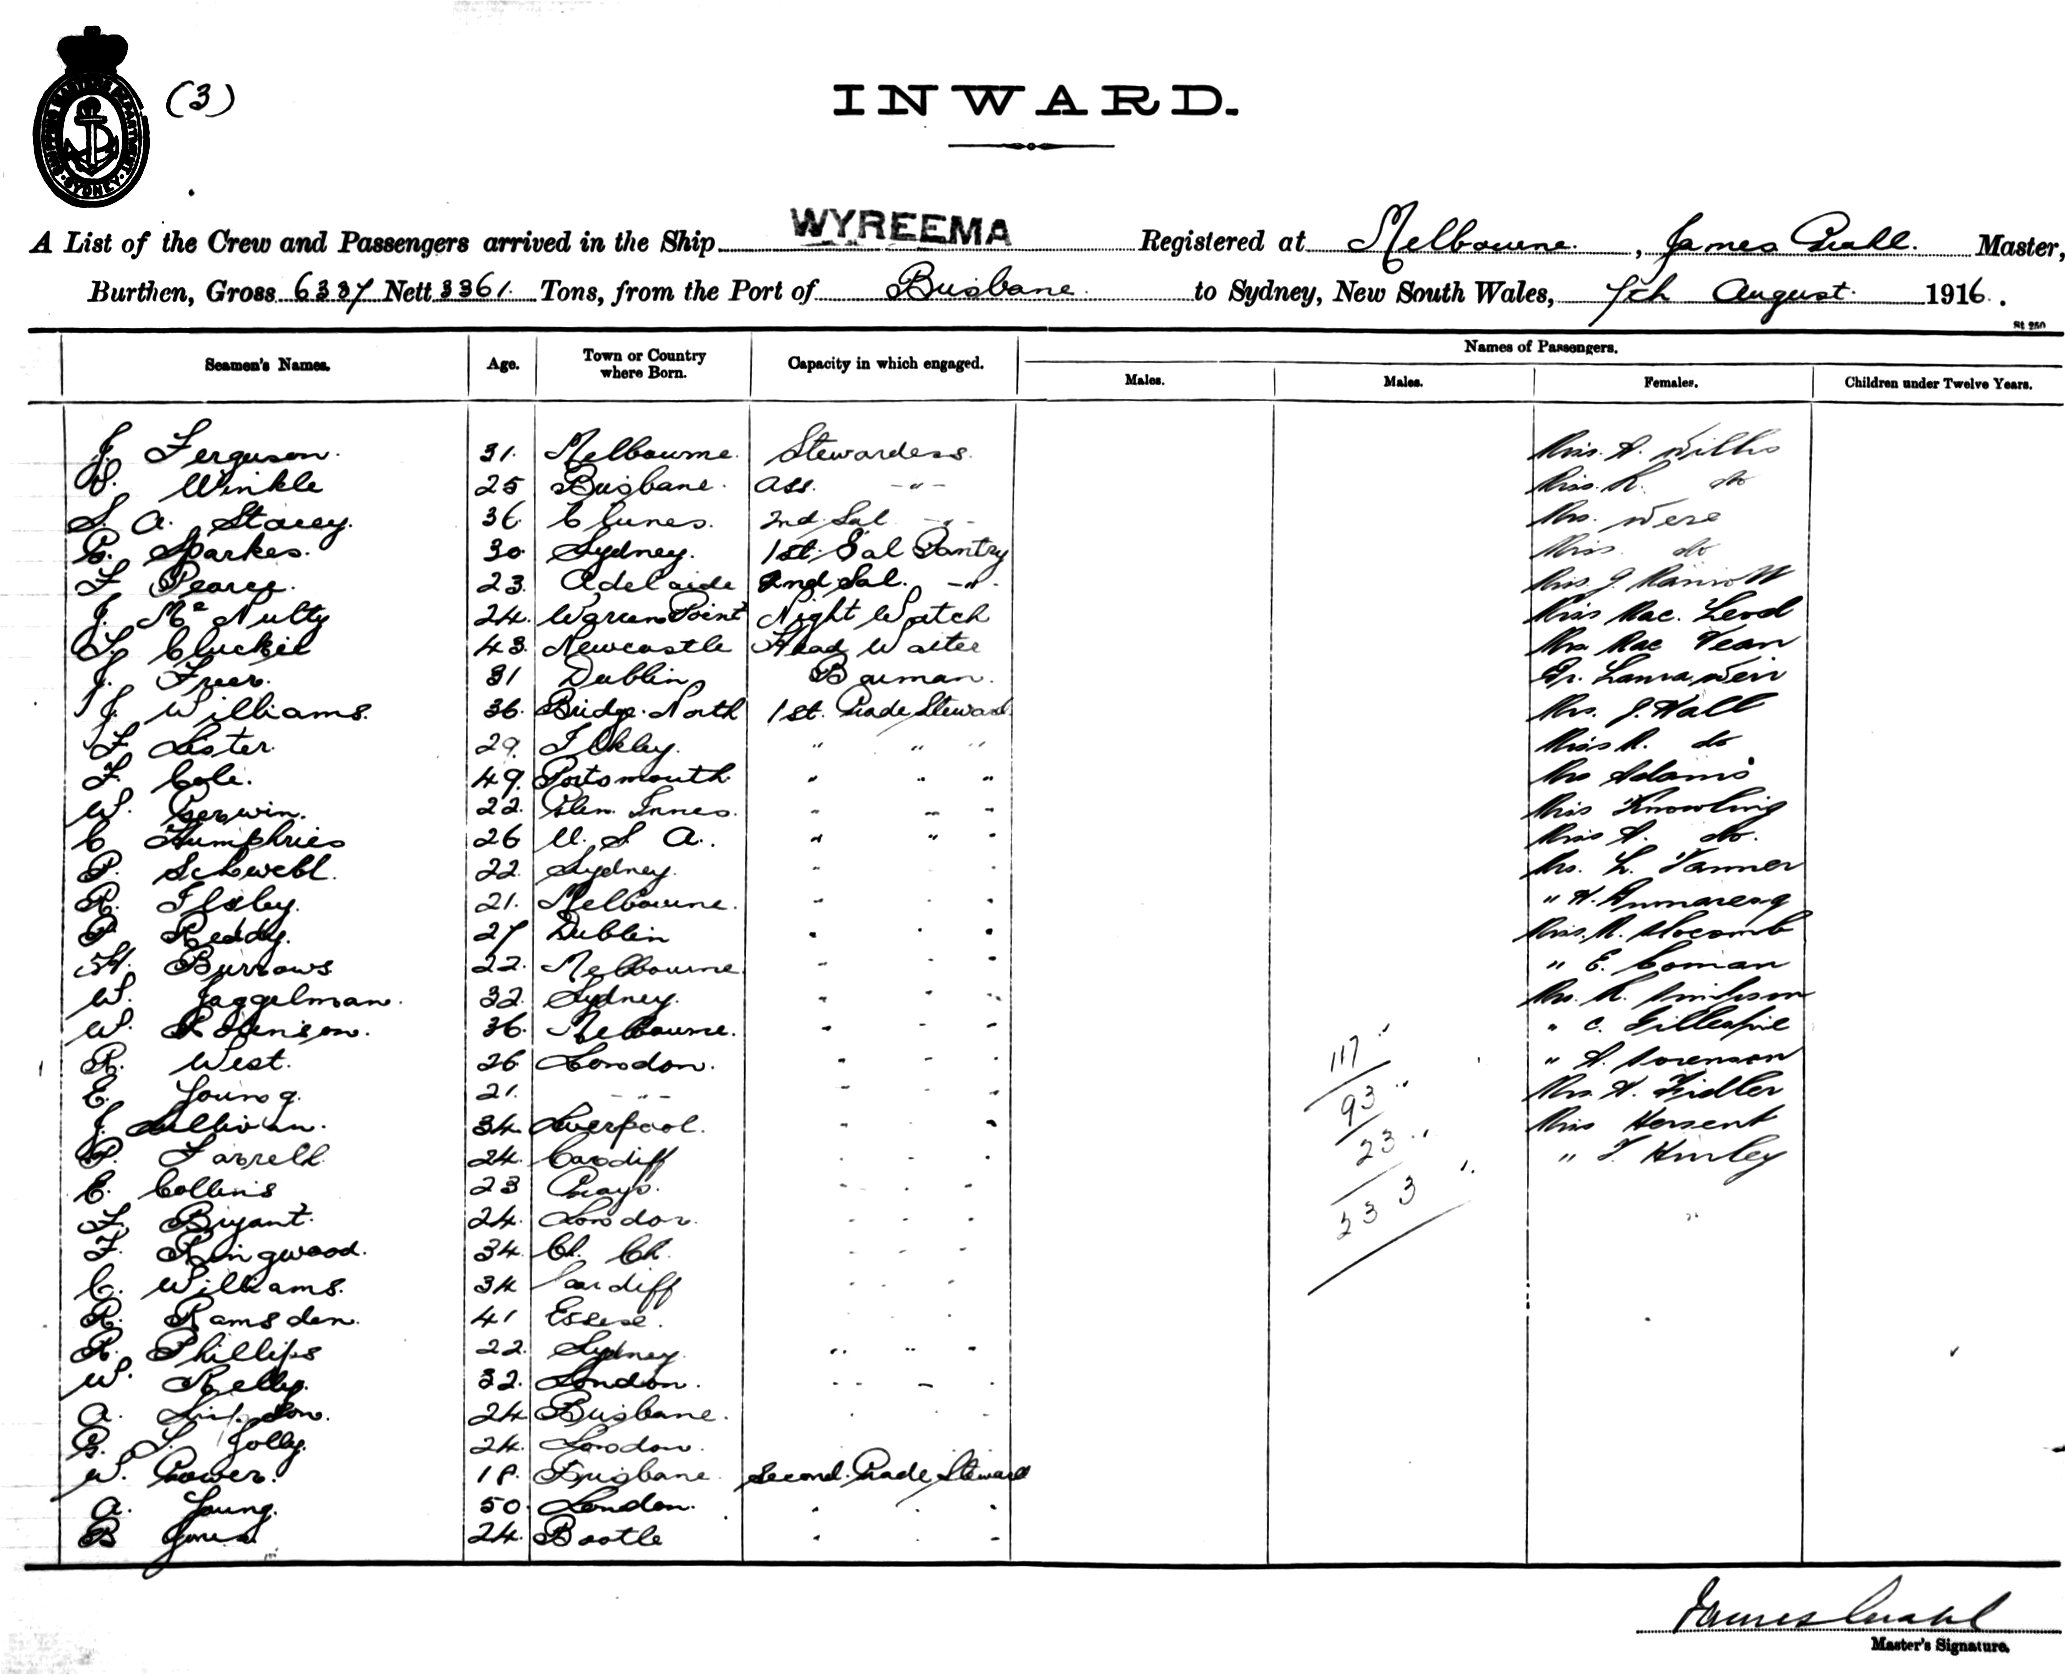 (3)
SHIPPING MASTERS DEPARTMENT SYDNEY
INWARD.
A List of the Crew and Passengers arrived in the Ship WYREEMA Registered at Melbourne, James Master,
Burthen, Gross 6337 Nett 3361. Tons, from the Port of Brisbane. to Sydney, New South Wales, 7th August 1916.
St 250
Seamen's Names. Age. Town or Country where Born. Capacity in which engaged. Names of Passengers.
Males. Males. Females. Children under Twelve Years.
J. Ferguson. 31. Melbourne. Stewardess. Miss. A. Willis
Winkle 25 Brisbane. Ass. -"- Miss. do
S. A. Stacey. 36. Clunes. 2nd. Sal -"- Mrs. Were
G. Sparkes. 30. Sydney. 1st. Sal Pantry Miss do
F. Pearce. 23. Adelaide 2nd Sal. -"- J.
J. Mc Nulty 24. Warren Point Night Watch Miss Mac. Leod
Cluckie 43. Newcastle Head Waiter Mrs Mac Vean
J. Freer. 31 Dublin Barman. Dr. Laura Weir
J. Williams. 36. Bridge. North 1st. Grade Steward Mrs. J. Hall
F. Lister. 29. Ilkley. " " " Miss M. do
F. Cole. 49. Portsmouth " " " Mrs Adams
W. Gerwin. 22. Glen. Innes. " " " Miss Knowling
C Humphries 26 U. S. A. " " " Miss A. do.
P. Schwebl. 22. Sydney. " " Mrs. L. Tanner
R. Ilsley. 21. Melbourne. " " " H.
P. Reddy. 27 Dublin " " " Miss. M. Slocomb
H. Burrows 22. Melbourne " " " " E. Coman
W. Jaggelman. 32. Sydney. " " " Mrs.
W. Robinson. 36. Melbourne. " " " " C. Gillespie
R. West. 26 London. " " " " A. Sorenson
E. Young. 21. -"- " " " Mrs. A. Fidler
J. Sullivan. 34. Liverpool. " " " Miss Hersent
P. Farrell 24. Cardiff " " " " F. Hurley
E. Collins 23 Grays. " " "
F. Bryant. 24. London. " " "
F. Ringwood. 34. Ch. Ch. " " "
C. Williams. 34 Cardiff " " "
R. Ramsden. 41 Essex. " " "
R. Phillips 22. Sydney. " " "
W. Kelly. 32. London. " " "
A. 24 Brisbane. " " "
G. S. Jolly. 24. London. " " "
W. Power. 18. Brisbane. Second. Grade Steward
A. Young. 50. London. " " "
B Jones 24. Bootle " " "
117
93
23
233
Master's Signature.